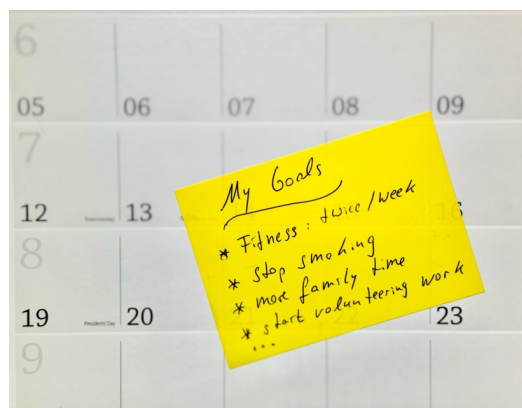 6
05 06 07 08 09
7
12 13 16
8
19 Presidents' Day 20 22 23
9
My Goals
* Fitness: twice/week
* stop smoking
* more family time
* start volunteering work
...